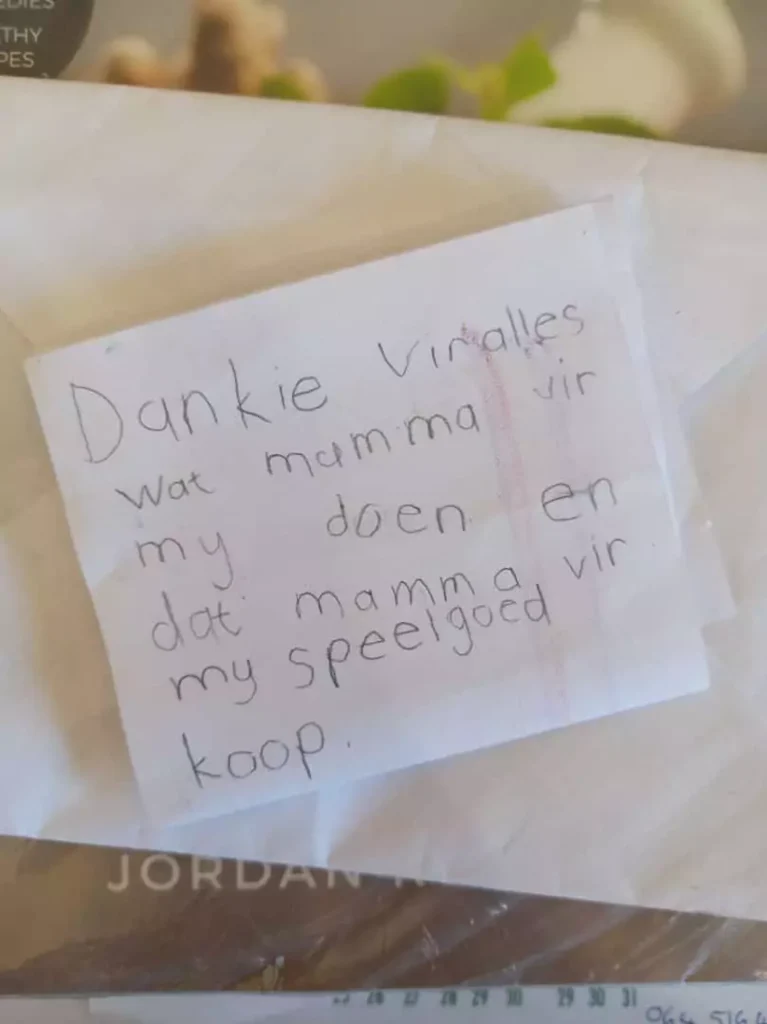 EDIES
THY
PES
Dankie vir alles
wat mamma vir
my doen en
dat mamma vir
my speelgoed
koop.
JORDAN
26 27 28 29 30 29 30 31
064 516 4